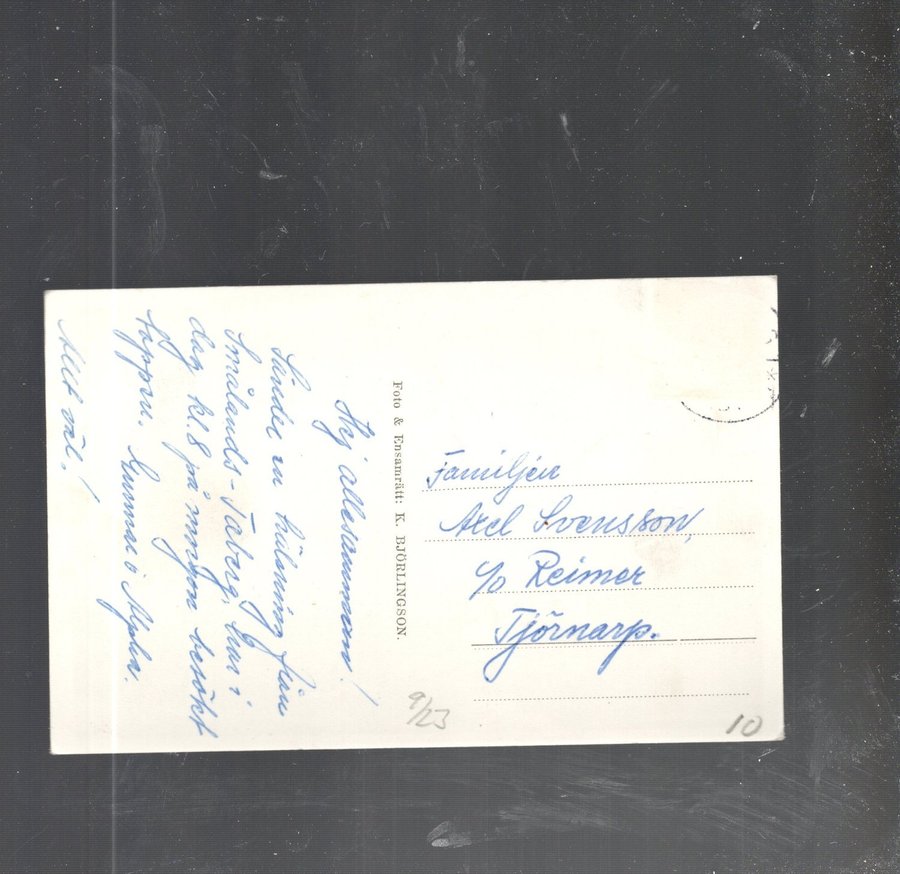 Hej allesammans!
Sänder en hälsning från
Smålands-Taberg, hur i
dag kl. 8 på morgon besökt
toppen. Gunnar o Alpha.
Allt väl!
Foto & Ensamrätt: K. BJÖRLINGSON.
Familjen
Axel Svensson,
c/o Reimer
Tjörnarp.
9/23
10